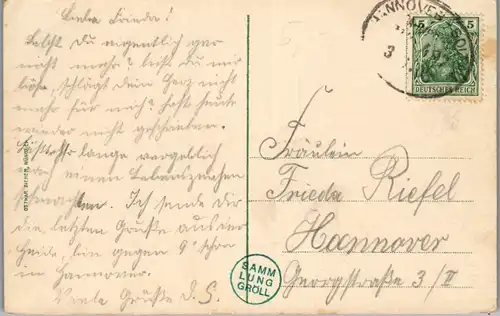 Liebe Frieda!
Lebst Du eigentlich gar
nicht mehr? bist Du mir
böse, schlägt Dein Herz nicht
mehr für mich? Hast heute
wieder nicht geschrieben.
lange vergeblich
einem Lebenszeichen
Ich sende Dir
die letzten Grüße aus der
Heide, bin gegen 9° schon
in Hannover.
Viele Grüße D. S.
HANNOVER
5 5
DEUTSCHES REICH
Fräulein
Frieda Riefel
Hannover
Georgstraße 3/II
SAMM
LUNG
GRÖLL